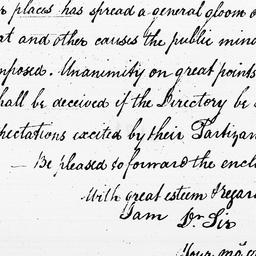 places has spread a general gloom o
at and other causes the public mind
mposed. Unanimity on great points
hall be deceived if the Directory be
pectations excited by their Partizan
— Be pleased to forward the encl
With great esteem & regar
I am Dr. Sir
Your